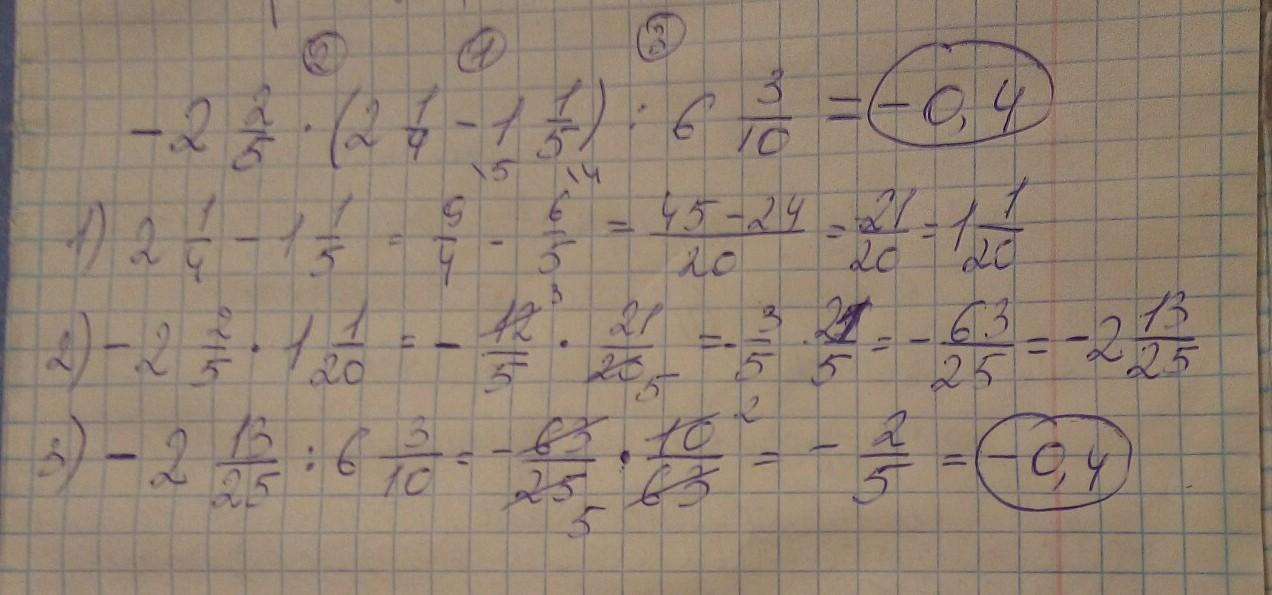 ② ① ③
-2 2/5 · (2 1/4 - 1 1/5) : 6 3/10 = -0,4
1) 2 1/4 - 1 1/5 = 9/4 \5 - 6/5 \4 = 45-24/20 = 21/20 = 1 1/20
2) -2 2/5 · 1 1/20 = - 12 3/5 · 21/20 5 = - 3/5 · 21/5 = - 63/25 = -2 13/25
3) -2 13/25 : 6 3/10 = - 63/25 5 · 10 2/63 = - 2/5 = -0,4